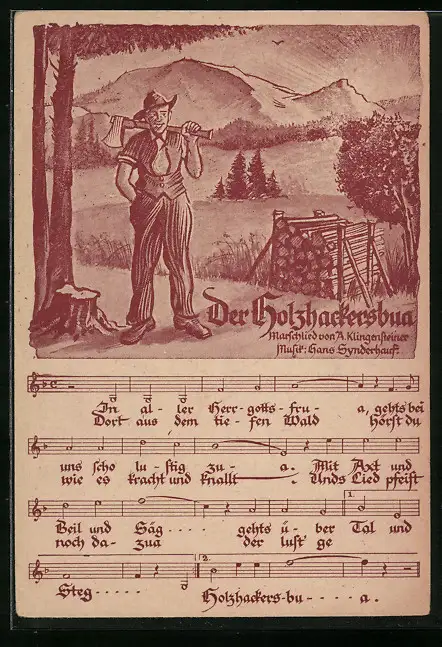 Der Holzhackersbua
Marschlied von A. Klingensteiner
Musik: Hans Synderhauf.
In al- ler Herr- gotts- fru- a, gehts bei
Dort aus dem tie- fen Wald hörst du
uns scho lu- stig zu- a. Mit Axt und
wie es kracht und knallt. Unds Lied pfeift
1.
Beil und Säg - - - - gehts ü- ber Tal und
noch da- zua der lust' ge
2.
Steg - - - - - Holzhackers- bu - - - - a.